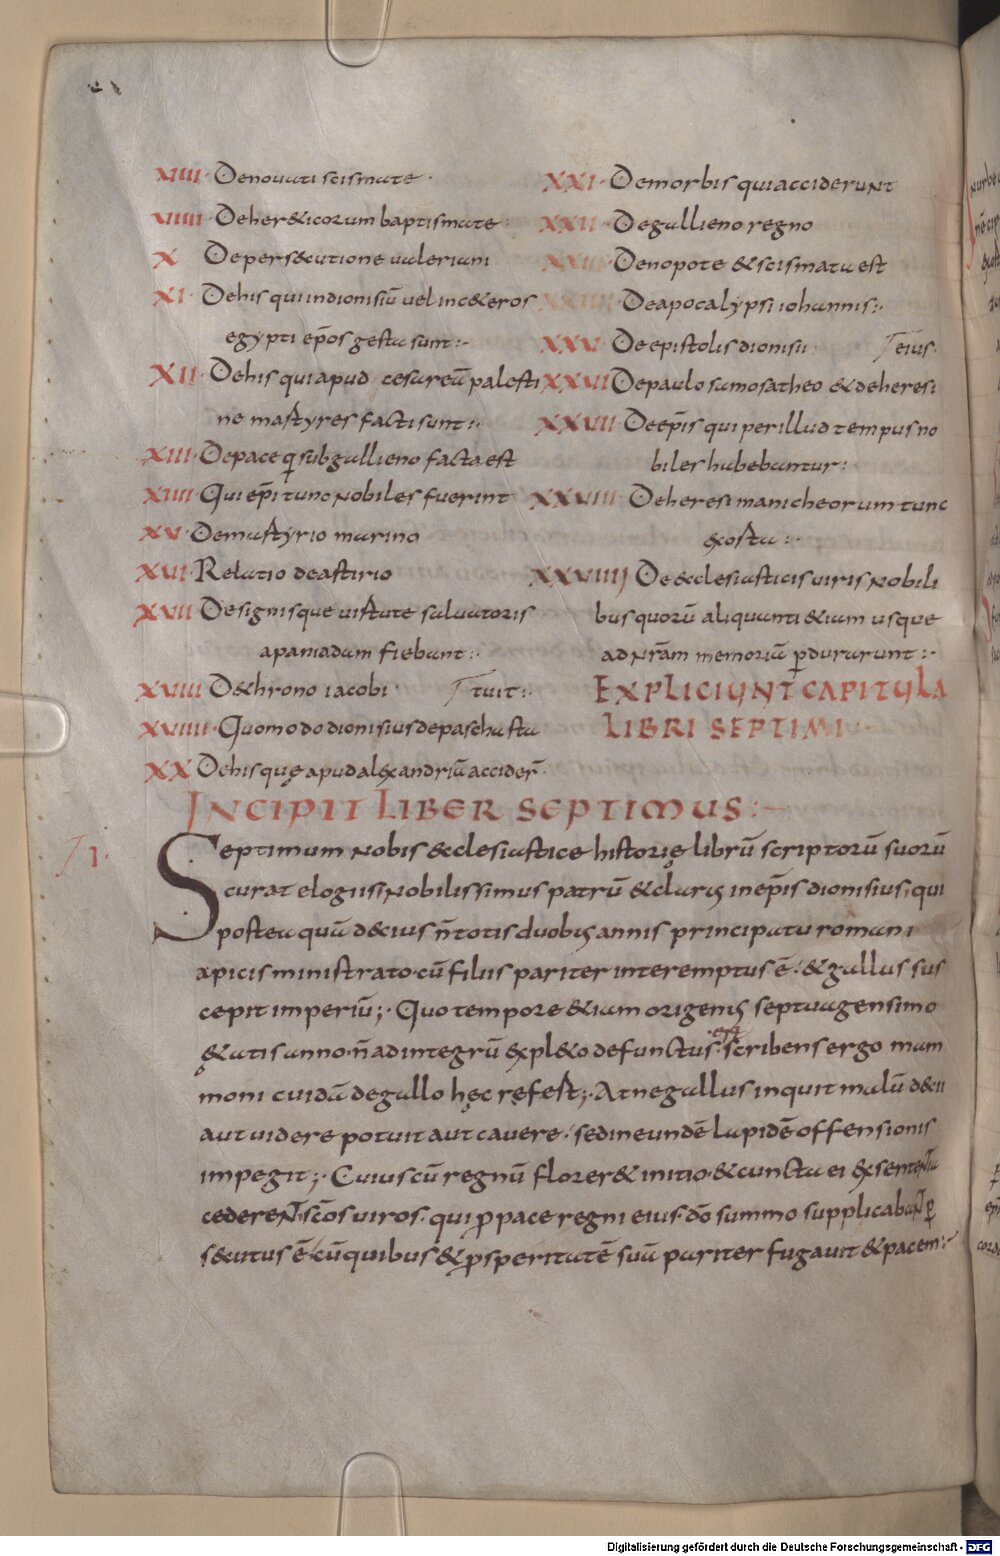 XIIII· Denouati scismate·
VIIII· De her&icorum baptismate·
X De pers&cutione ualeriani
XI· De his qui in dionisiū uel in c&eros
egypti ep̄os gesta sunt:·
XII· De his qui apud cesareā palesti
ne martyres facti sunt:·
XIII· De pace q sub gallieno facta est
XIIII· Qui ep̄i tunc nobiles fuerint
XV· De martyrio marino
XVI· Relatio de astirio
XVII De signis que uirtute saluatoris
apaniadam fiebant:·
XVIII D&hrono iacobi· tuit:·
XVIIII· Quomodo dionisius de pascha sta
XX De his quę apud alexandriā acciderꝛ̄·
XXI· De morbis qui acciderunt
XXII· De gallieno regno
XXIII De nopote & scismata est
XXIIII De apocalypsi iohannis:·
XXV· De epistolis dionisii eius·
XXVI De paulo samosatheo & de heresi
XXVII De ep̄is qui per illud tempus no
biles habebantur:
XXVIII De heresi manicheorum tunc
exorta:·
XXVIIII De &clesiasticis uiris nobili
bus quorū aliquanti &iam usque
ad nr̄am memoriā ꝑdurarunt:·
EXPLICIUNT CAPITULA
LIBRI SEPTIMI
INCIPIT LIBER SEPTIMUS:
I·
Septimum nobis &clesiasticę historię librū scriptorū suorū
curat elogiis nobilissimus patrū & clarus in ep̄is dionisius; qui
postea quā d&ius n̄ totis duobus annis principatu romani
apicis ministrato· cū filiis pariter interemptus ē· & gallus sus
cepit imperiū;· Quo tempore &iam origenis septuagensimo
&atis anno· n̄ ad integrū expl&o defunctus· est scribens ergo mam
moni cuidā de gallo hęc refert;· At ne gallus inquit malū d&ii
aut uidere potuit aut cauere· sed in eundē lapidē offensionis
impegit;· Cuius cū regnū florer& initio· & cuncta ei ex sententia
cederent· sc̄os uiros· qui ꝓ pace regni eius· dō summo supplicabant ꝑ
s&utus ē· cū quibus & ꝓsperitatē suā pariter fugauit & pacem:·
Digitalisierung gefördert durch die Deutsche Forschungsgemeinschaft - DFG